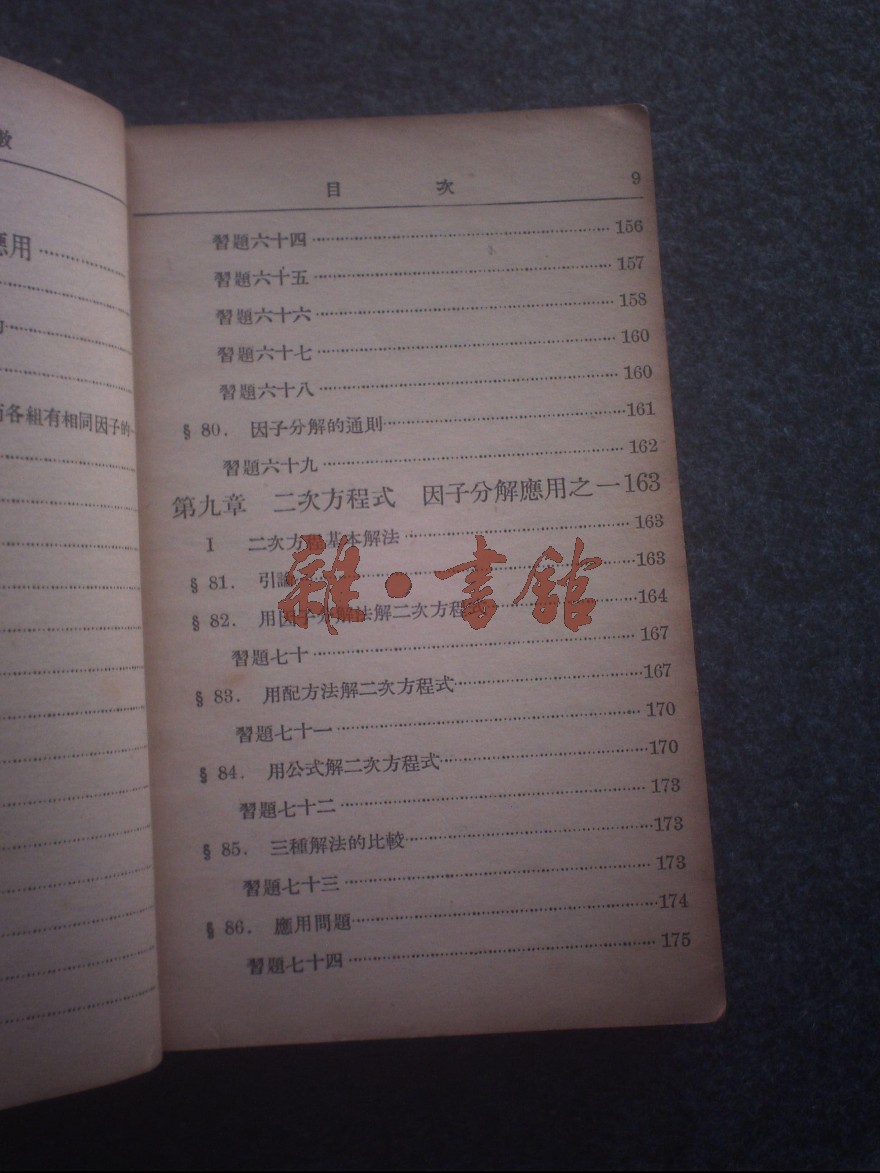 數
應用
而各組有相同因子的
目 次 9
習題六十四 156
習題六十五 157
習題六十六 158
習題六十七 160
習題六十八 160
§ 80. 因子分解的通則 161
習題六十九 162
第九章 二次方程式 因子分解應用之一 163
I 二次方程基本解法 163
§ 81. 引論 163
§ 82. 用因子分解法解二次方程式 164
習題七十 167
§ 83. 用配方法解二次方程式 167
習題七十一 170
§ 84. 用公式解二次方程式 170
習題七十二 173
§ 85. 三種解法的比較 173
習題七十三 173
§ 86. 應用問題 174
習題七十四 175
雜·書館